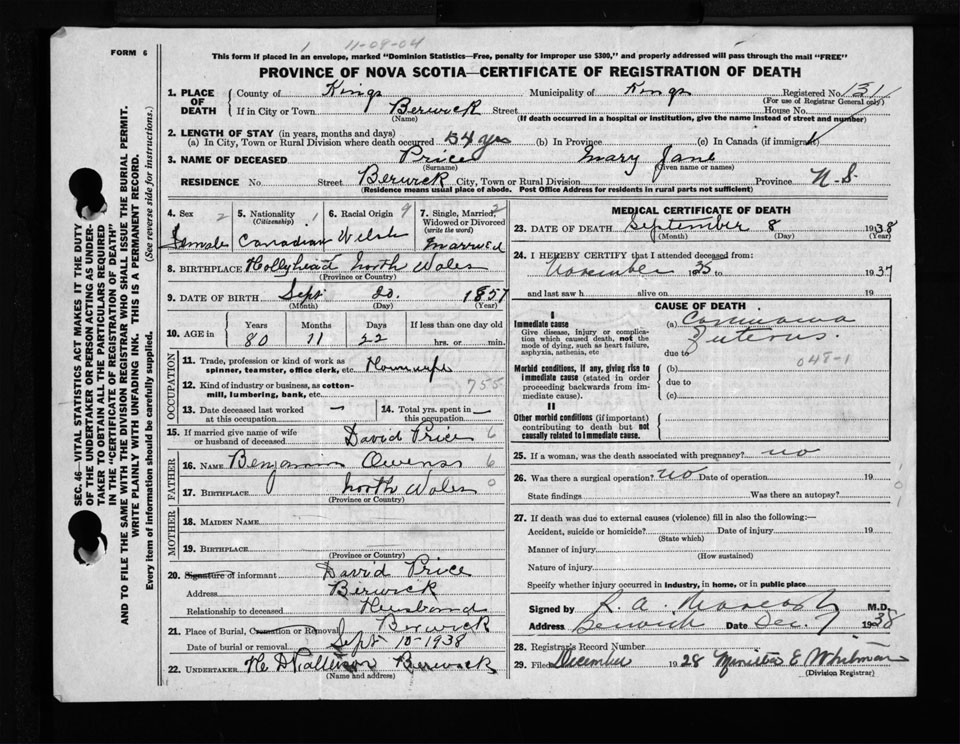 FORM 6
1
11-08-04
This form if placed in an envelope, marked "Dominion Statistics—Free, penalty for improper use $300," and properly addressed will pass through the mail "FREE"
PROVINCE OF NOVA SCOTIA—CERTIFICATE OF REGISTRATION OF DEATH
SEC. 46—VITAL STATISTICS ACT MAKES IT THE DUTY
OF THE UNDERTAKER OR PERSON ACTING AS UNDER-
TAKER TO OBTAIN ALL THE PARTICULARS REQUIRED
IN THE "CERTIFICATE OF REGISTRATION OF DEATH"
AND TO FILE THE SAME WITH THE DIVISION REGISTRAR WHO SHALL ISSUE THE BURIAL PERMIT.
WRITE PLAINLY WITH UNFADING INK. THIS IS A PERMANENT RECORD.
Every item of information should be carefully supplied. (See reverse side for instructions.)
1. PLACE OF DEATH
County of Kings Municipality of Kings Registered No. 1311
(For use of Registrar General only)
If in City or Town Berwick Street House No.
(Name) (If death occurred in a hospital or institution, give the name instead of street and number)
2. LENGTH OF STAY (in years, months and days)
(a) In City, Town or Rural Division where death occurred 54 yrs (b) In Province (c) In Canada (if immigrant)
3. NAME OF DECEASED Price Mary Jane
(Surname) (Given name or names)
RESIDENCE No. Street Berwick City, Town or Rural Division Province N.S.
(Residence means usual place of abode. Post Office Address for residents in rural parts not sufficient)
4. Sex 2 Female
5. Nationality (Citizenship) 1 Canadian
6. Racial Origin 9 Welsh
7. Single, Married, Widowed or Divorced (write the word) 2 Married
8. BIRTHPLACE Hollyhead North Wales
(Province or Country)
9. DATE OF BIRTH Sept 20. 1857
(Month) (Day) (Year)
10. AGE in Years Months Days If less than one day old
80 11 22 hrs. or min.
OCCUPATION
11. Trade, profession or kind of work as spinner, teamster, office clerk, etc. Housewife
12. Kind of industry or business, as cotton-mill, lumbering, bank, etc. 755
13. Date deceased last worked at this occupation —
14. Total yrs. spent in this occupation —
15. If married give name of wife or husband of deceased David Price 6
FATHER
16. NAME Benjamin Owens 6
17. BIRTHPLACE North Wales 0
(Province or Country)
MOTHER
18. MAIDEN NAME
19. BIRTHPLACE
(Province or Country)
20. Signature of informant David Price
Address Berwick
Relationship to deceased Husband
21. Place of Burial, Cremation or Removal Berwick
Date of burial or removal Sept 10-1938
22. UNDERTAKER Berwick
(Name and address)
MEDICAL CERTIFICATE OF DEATH
23. DATE OF DEATH September 8 1938
(Month) (Day) (Year)
24. I HEREBY CERTIFY that I attended deceased from:
November 25 to 1937
and last saw h alive on 19
CAUSE OF DEATH
I
Immediate cause (a) Carcinoma
Give disease, injury or complication which caused death, not the mode of dying, such as heart failure, asphyxia, asthenia, etc
Uterus.
due to
048-1
Morbid conditions, if any, giving rise to immediate cause (stated in order proceeding backwards from immediate cause).
(b)
due to
(c)
II
Other morbid conditions (if important) contributing to death but not causally related to immediate cause.
25. If a woman, was the death associated with pregnancy? no
26. Was there a surgical operation? no Date of operation 19
State findings Was there an autopsy?
27. If death was due to external causes (violence) fill in also the following:—
Accident, suicide or homicide? Date of injury 19
(State which)
Manner of injury
(How sustained)
Nature of injury
Specify whether injury occurred in industry, in home, or in public place
Signed by R. A. M.D.
Address Berwick Date Dec. 7 1938
28. Registrar's Record Number
29. Filed December 1928 E Whitman
(Division Registrar)